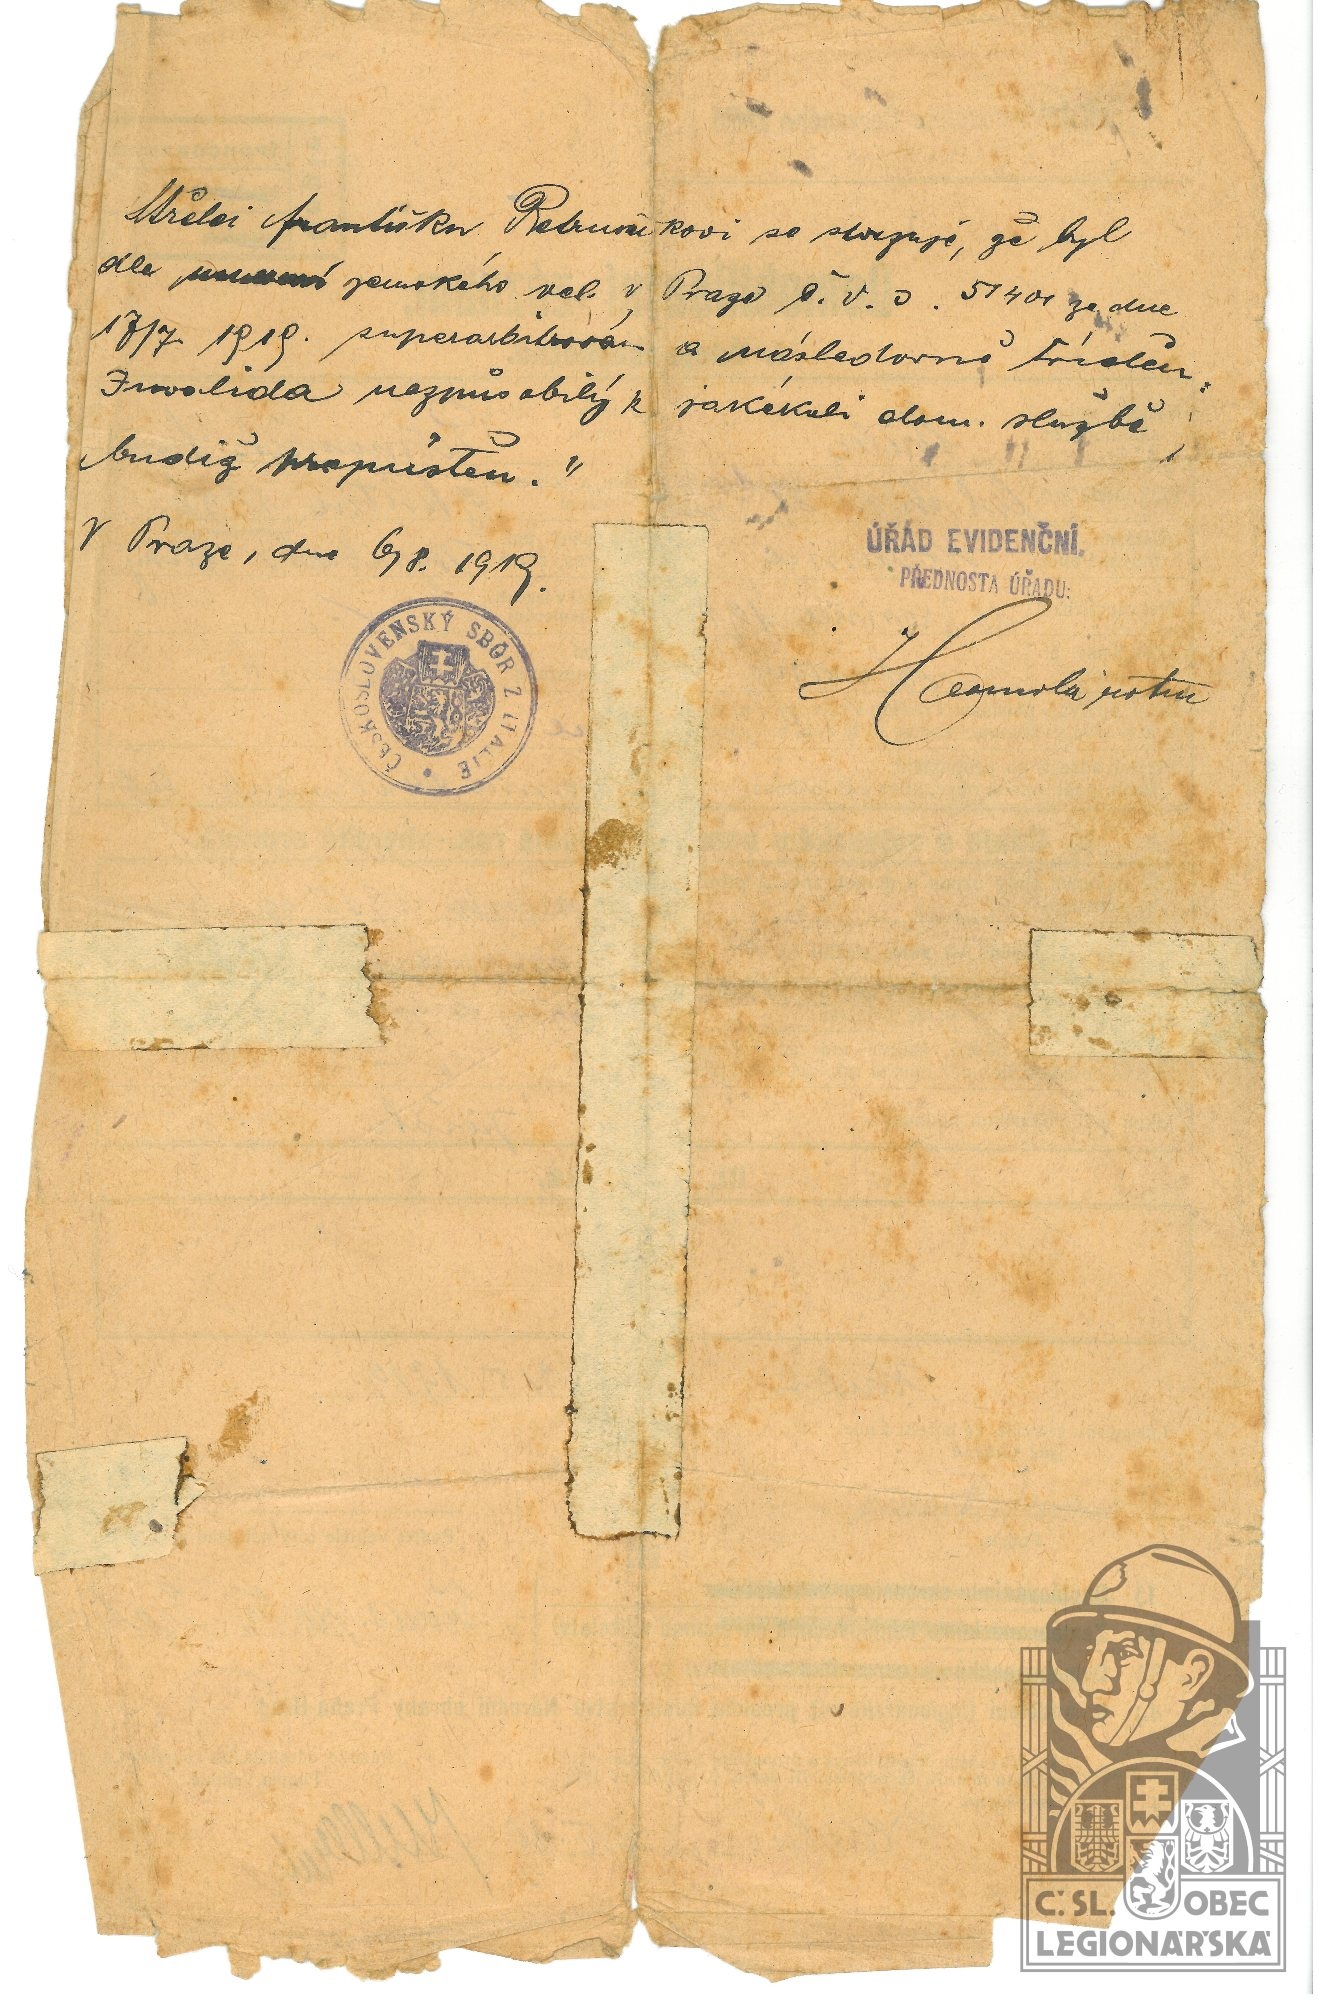 Střelci Františku Petruškovi se stvrzuje, že byl
dle zemského vel. v Praze č. v. 51401 ze dne
17/7. 1919. superarbitrován a následovně tříděn:
„Invalida nezpůsobilý k jakékoli dom. službě,
budiž propuštěn."
V Praze, dne 6/8. 1919.
ÚŘAD EVIDENČNÍ.
PŘEDNOSTA ÚŘADU:
ČESKOSLOVENSKÝ SBOR Z ITALIE
Č.SL. OBEC
LEGIONÁŘSKÁ